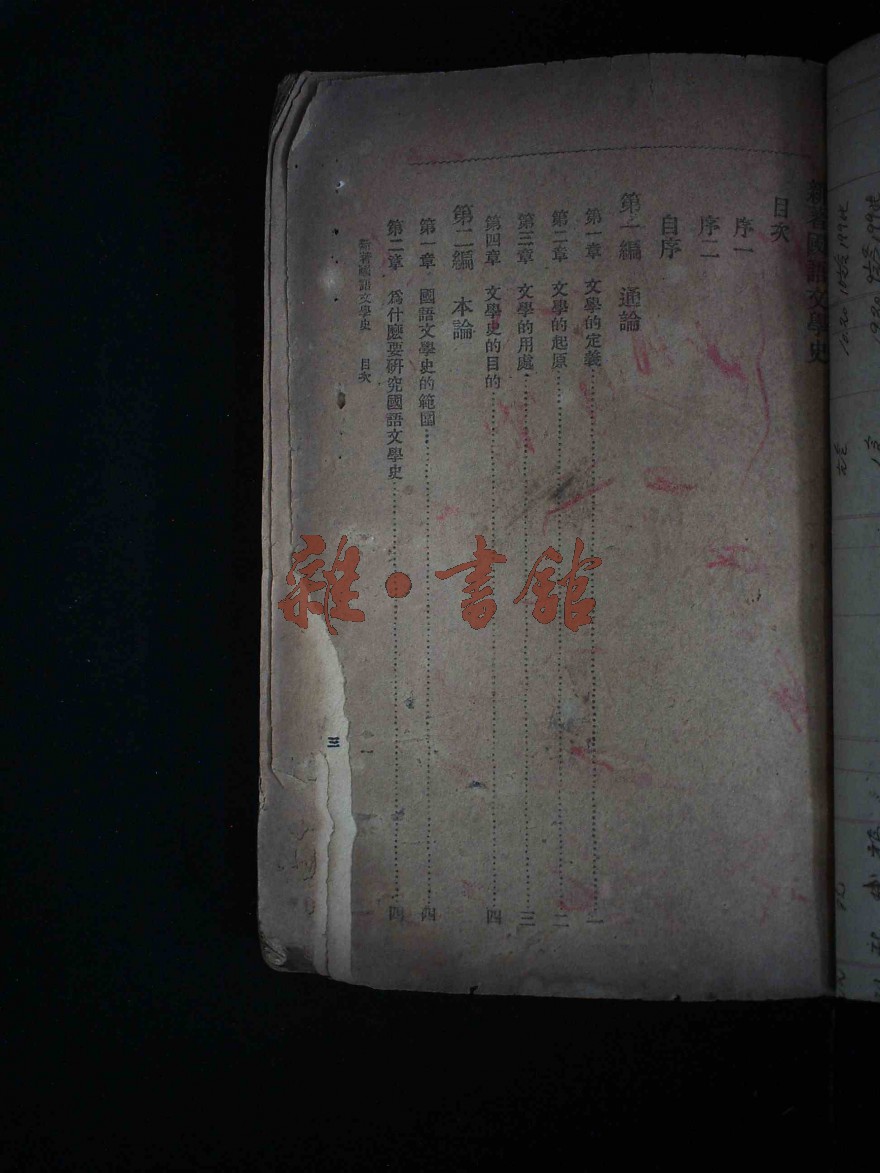 新著國語文學史
目次
序一
序二
自序
第一編 通論
第一章 文學的定義……一
第二章 文學的起原……二
第三章 文學的用處……三
第四章 文學史的目的……四
第二編 本論
第一章 國語文學史的範圍……四
第二章 爲什麼要研究國語文學史……四
新著國語文學史 目次 一
三
雜·書館